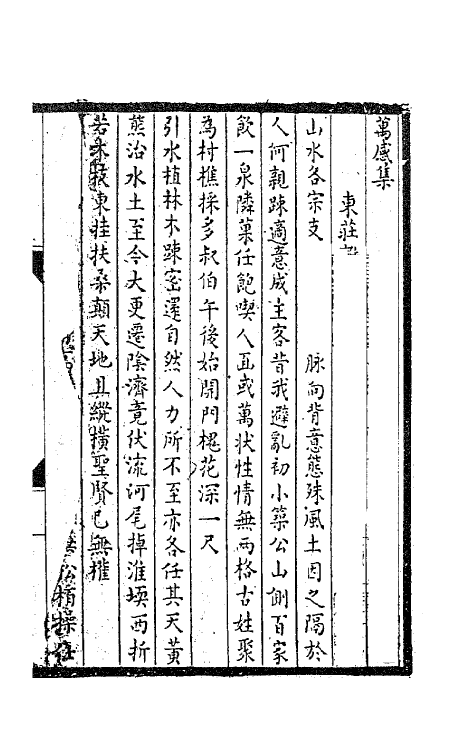 萬感集
東莊
山水各宗支　　脉向背意態殊風土因之隔於
人何親疎適意成主客昔我避亂初小築公山側百家
飲一泉隣菓任飽喫人面或萬状性情無两格古姓聚
為村樵採多叔伯午後始開門槐花深一尺
引水植林木疎密還自然人力所不至亦各任其天黄
熊治水土至今大更遷陰濟竟伏流河尾掉淮堧西折
若木枝東挂扶桑顛天地且縱横聖賢已無權